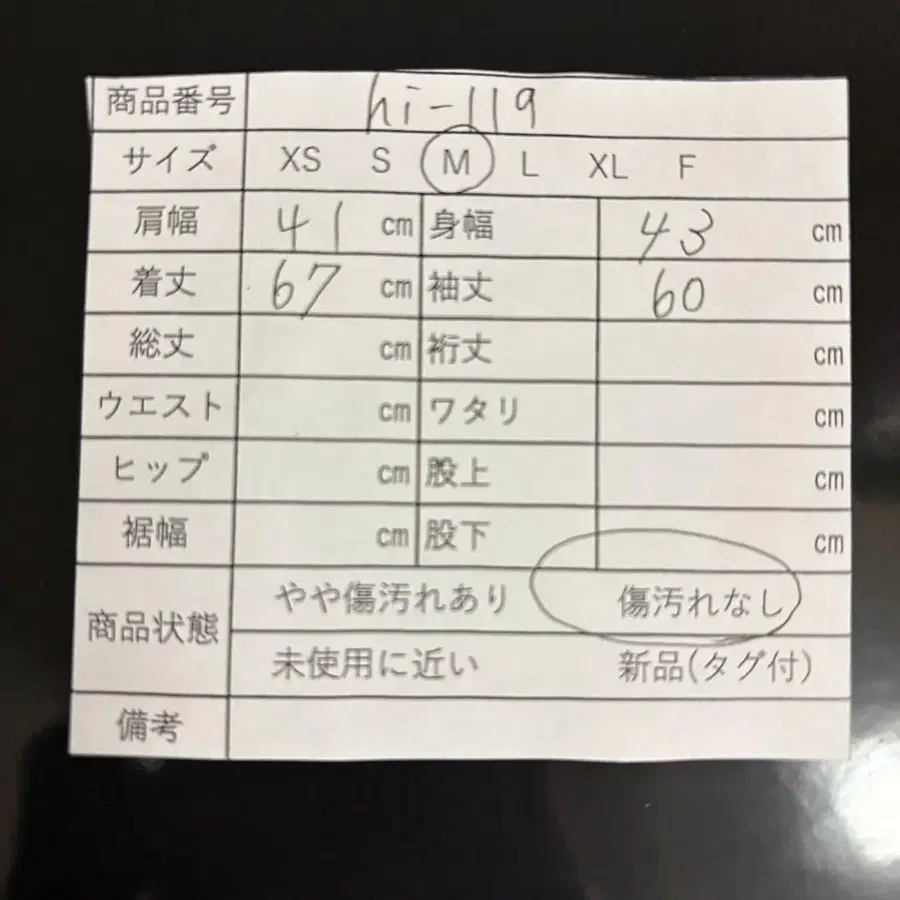 商品番号 hi-119
サイズ XS S M L XL F
肩幅 41 cm 身幅 43 cm
着丈 67 cm 袖丈 60 cm
総丈 cm 裄丈 cm
ウエスト cm ワタリ cm
ヒップ cm 股上 cm
裾幅 cm 股下 cm
商品状態 やや傷汚れあり 傷汚れなし
未使用に近い 新品(タグ付)
備考